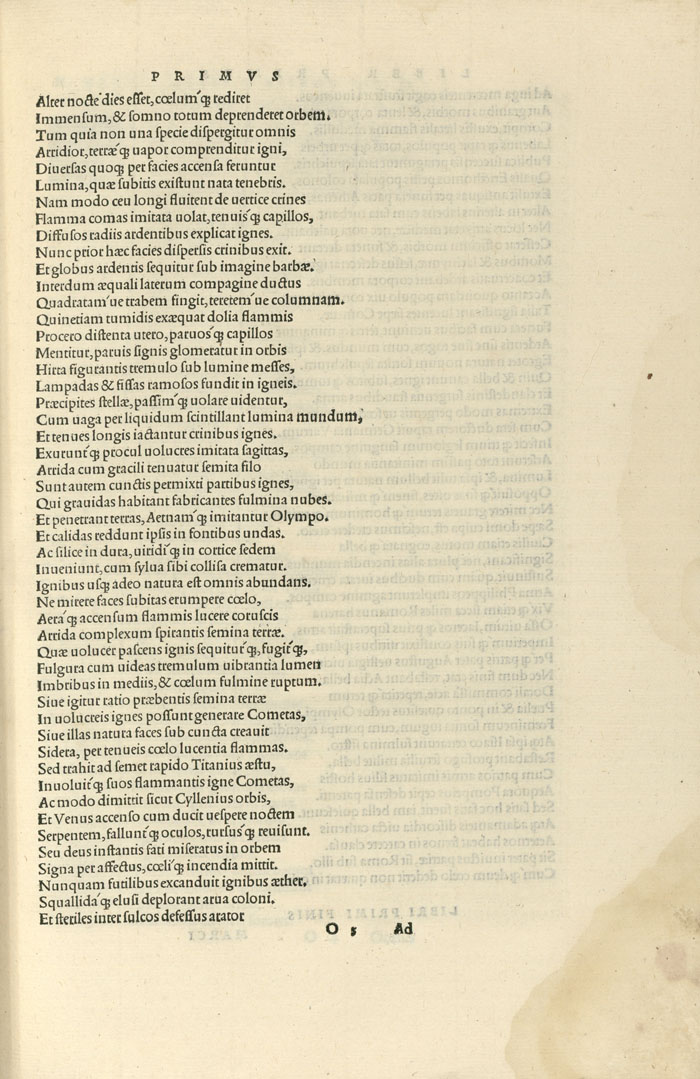 P R I M V S
Alter nocte dies esset, cœlumq́ꝫ rediret
Immensum, & somno totum deprenderet orbem.
Tum quia non una specie dispergitur omnis
Arridior, terræq́ꝫ uapor comprenditur igni,
Diuersas quoqꝫ per facies accensa feruntur
Lumina, quæ subitis existunt nata tenebris.
Nam modo ceu longi fluitent de uertice crines
Flamma comas imitata uolat, tenuisq́ꝫ capillos,
Diffusos radiis ardentibus explicat ignes.
Nunc prior hæc facies dispersis crinibus exit.
Et globus ardentis sequitur sub imagine barbæ.
Interdum æquali laterum compagine ductus
Quadratam'ue trabem fingit, teretem'ue columnam.
Quinetiam tumidis exæquat dolia flammis
Procero distenta utero, paruosq́ꝫ capillos
Mentitur, paruis signis glomeratur in orbis
Hirta figurantis tremulo sub lumine messes,
Lampadas & fissas ramosos fundit in igneis.
Præcipites stellæ, passimq́ꝫ uolare uidentur,
Cum uaga per liquidum scintillant lumina mundum,
Et tenues longis iactantur crinibus ignes.
Exurunt'qꝫ procul uolucres imitata sagittas,
Arrida cum gracili tenuatur semita filo
Sunt autem cunctis permixti partibus ignes,
Qui grauidas habitant fabricantes fulmina nubes.
Et penetrant terras, Aetnamq́ꝫ imitantur Olympo.
Et calidas reddunt ipsis in fontibus undas.
Ac silice in dura, uiridiq́ꝫ in cortice sedem
Inueniunt, cum sylua sibi collisa crematur.
Ignibus usqꝫ adeo natura est omnis abundans.
Ne mirere faces subitas erumpere cœlo,
Aeraq́ꝫ accensum flammis lucere coruscis
Arrida complexum spirantis semina terræ.
Quæ uolucer pascens ignis sequiturq́ꝫ, fugitq́ꝫ,
Fulgura cum uideas tremulum uibrantia lumen
Imbribus in mediis, & cœlum fulmine ruptum.
Siue igitur ratio præbentis semina terræ
In uolucreis ignes possunt generare Cometas,
Siue illas natura faces sub cuncta creauit
Sidera, per tenueis cœlo lucentia flammas.
Sed trahit ad semet rapido Titanius æstu,
Inuoluitq́ꝫ suos flammantis igne Cometas,
Ac modo dimittit sicut Cyllenius orbis,
Et Venus accenso cum ducit uespere noctem
Serpentem, falluntq́ꝫ oculos, rursusq́ꝫ reuisunt.
Seu deus instantis fati miseratus in orbem
Signa per affectus, cœliq́ꝫ incendia mittit.
Nunquam futilibus excanduit ignibus æther.
Squallidaq́ꝫ elusi deplorant arua coloni.
Et steriles inter sulcos defessus arator
O 5 Ad